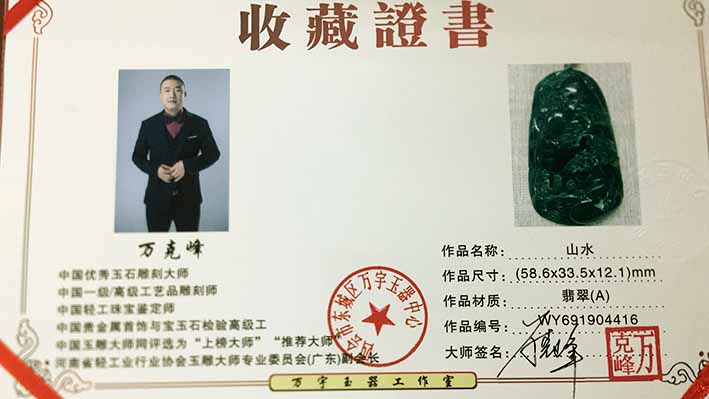 收藏證書
万克峰
中国优秀玉石雕刻大师
中国一级/高级工艺品雕刻师
中国轻工珠宝鉴定师
中国贵金属首饰与宝玉石检验高级工
中国玉雕大师网评选为“上榜大师”“推荐大师”
河南省轻工业行业协会玉雕大师专业委员会(广东)副会长
市东城区万宇玉器中心
作品名称: 山水
作品尺寸: (58.6x33.5x12.1)mm
作品材质: 翡翠(A)
作品编号: WY691904416
大师签名:
万克峰
万宇玉器工作室